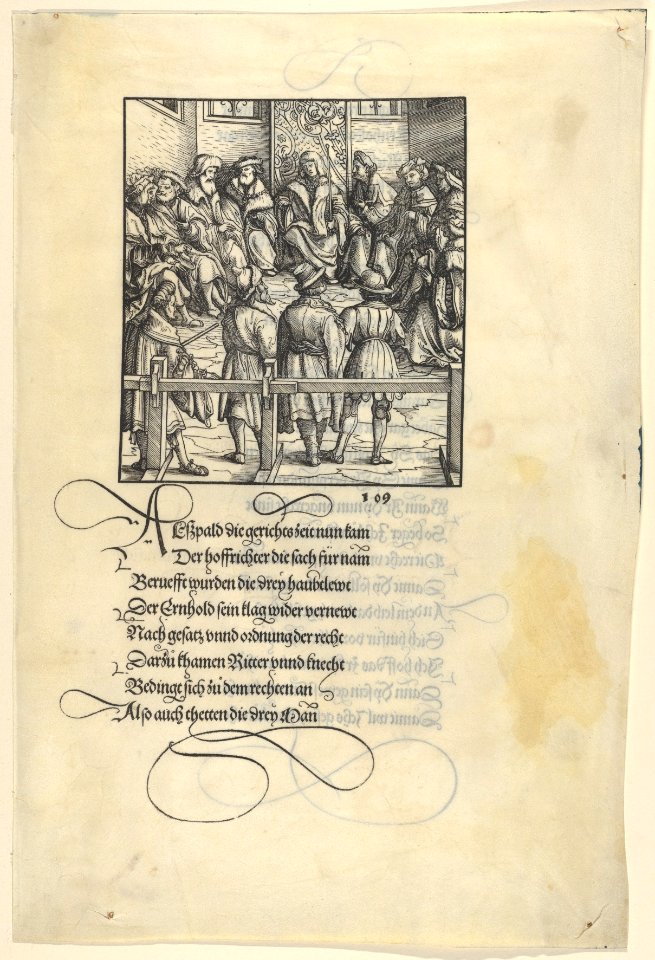 109
Alſzpald die gerichts zeit nun kam
Der hoffrichter die ſach für nam̄
Beruefft wurden die drey haubtlewt
Der Ernhold ſein klag wider vernewt
Nach geſatz vnnd ordnung der recht
Darzů khamen Ritter vnnd knecht
Bedingt ſich zů dem rechten an
Alſo auch thetten die drey Man̄